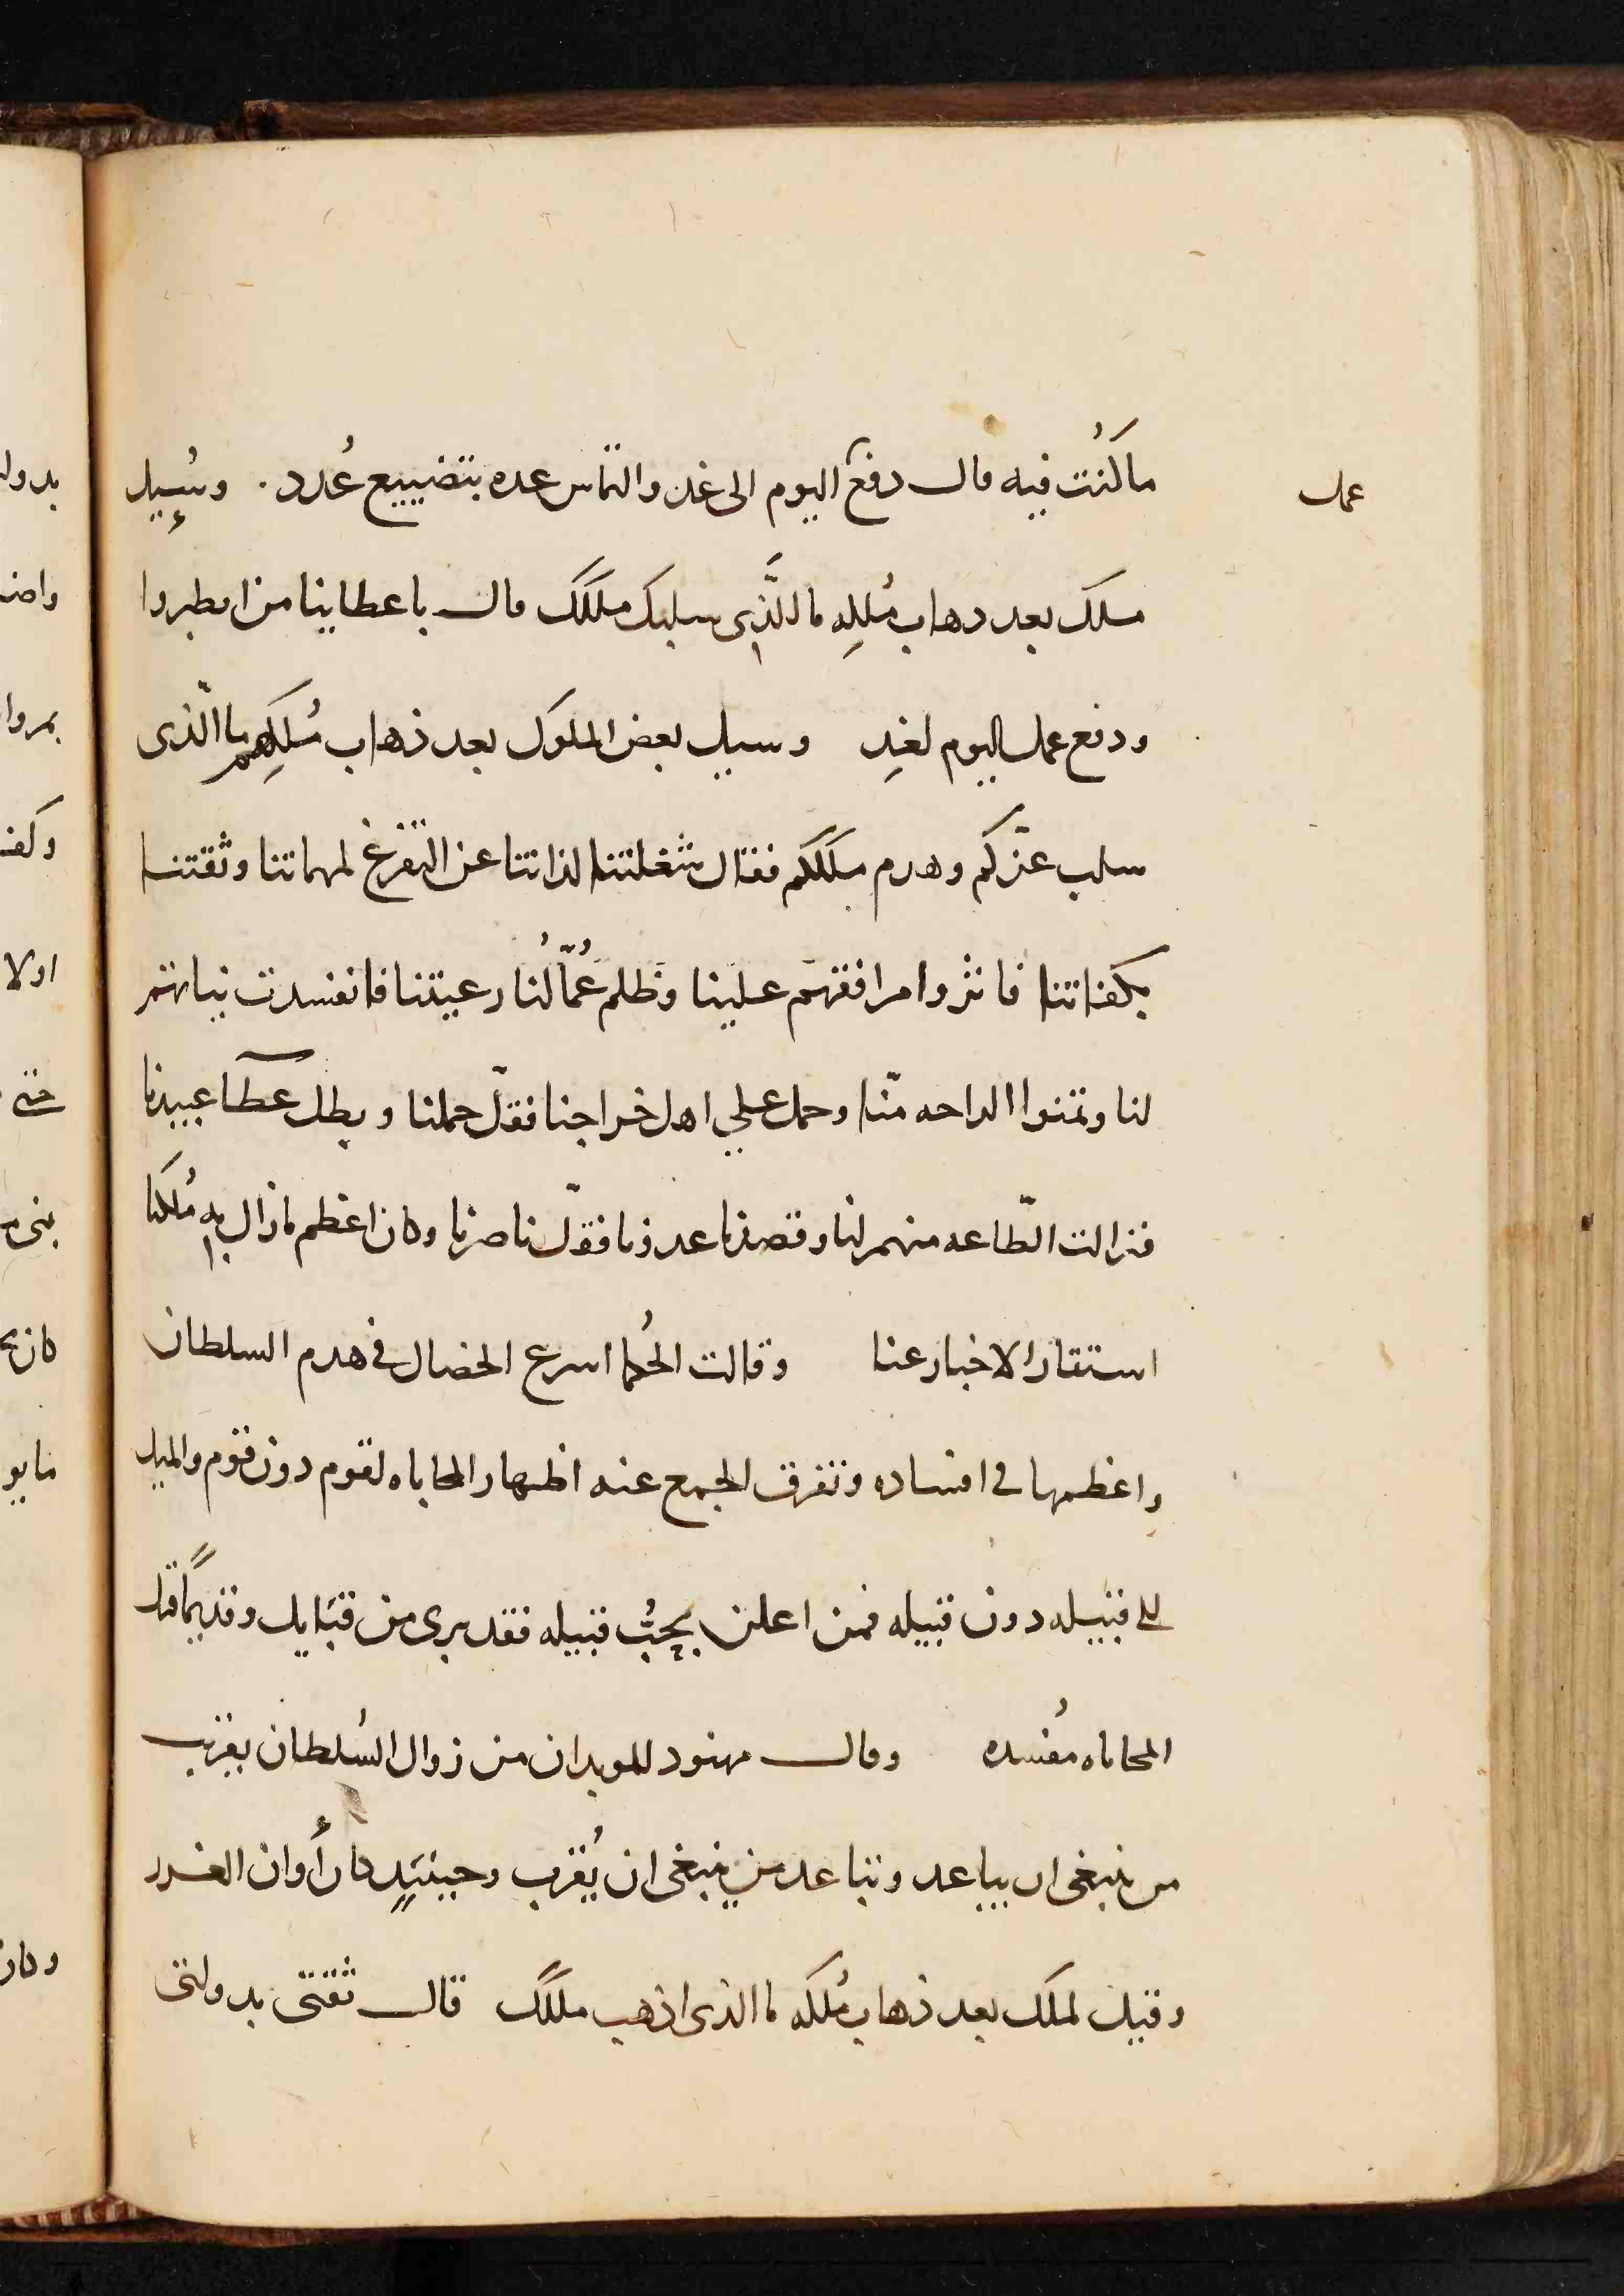 عمل
ما كنُت فيه قال دفع اليوم الى غد والتماس عده بتضييع عُدد . وسُيِل
ملك بعد دهاب مُلكِه ما الَّذى سلبك ملكك قال با عطاينا من
ودفع عمل اليوم لغدِ وسيل بعض الملوك بعد ذهاب مُلكِهم ما الّذى
سلب عزّكم وهدم ملككم فقال شغلتنا لذاتنا عن التفرغ لمهماتنا وثقتنا
بكفاتنا فاثروا مرافقهم علينا وظلم عُمّالُنا رعيتنا فانفسدت نياتهم
لنا وتمنوا الراحه منّا وحمل على اهل خراجنا فقلّ حملنا وبطل عطآ عبيدنا
فزالت الطّاعه منهم لنا وقصدنا عدونا فقلّ ناصرنا وكان اعظم ما زال به مُلكنا
استتار الاخبار عنا وقالت الحُكما اسرع الخصال فى هدم السلطان
واعظمها فى افساده وتفرق الجمع عنه اظهار المحاباه لقوم دون قوم والميل
الى قبيله دون قبيله فمن اعلن بحُبّ قبيله فقد برى من قبايل وقديمًا قيل
المحاباه مُفسده وقال مهبود للموبدان من زوال السُلطان يقرب
من ينبغى ان يباعد وتباعد من ينبغى ان يُقرب وحينئذٍ حان أَوان الغدر
وقيل لملك بعد ذهاب مُلكه ما الذى اذهب ملكك قال ثقتى بدولتى